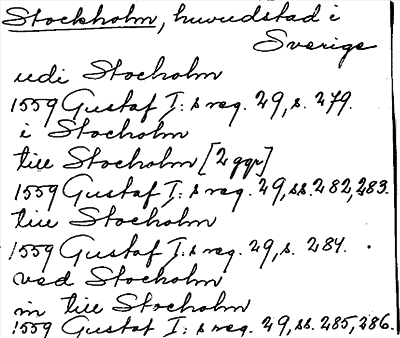 Stockholm, huvudstad i
Sverige
udi Stocholm
1559 Gustaf I: s reg. 29, s. 279.
i Stocholm
till Stocholm [2 ggr]
1559 Gustaf I: s reg. 29, ss. 282, 283.
till Stocholm
1559 Gustaf I: s reg. 29, s. 284.
ved Stocholm
in till Stocholm
1559 Gustaf I: s reg. 29, ss. 285, 286.